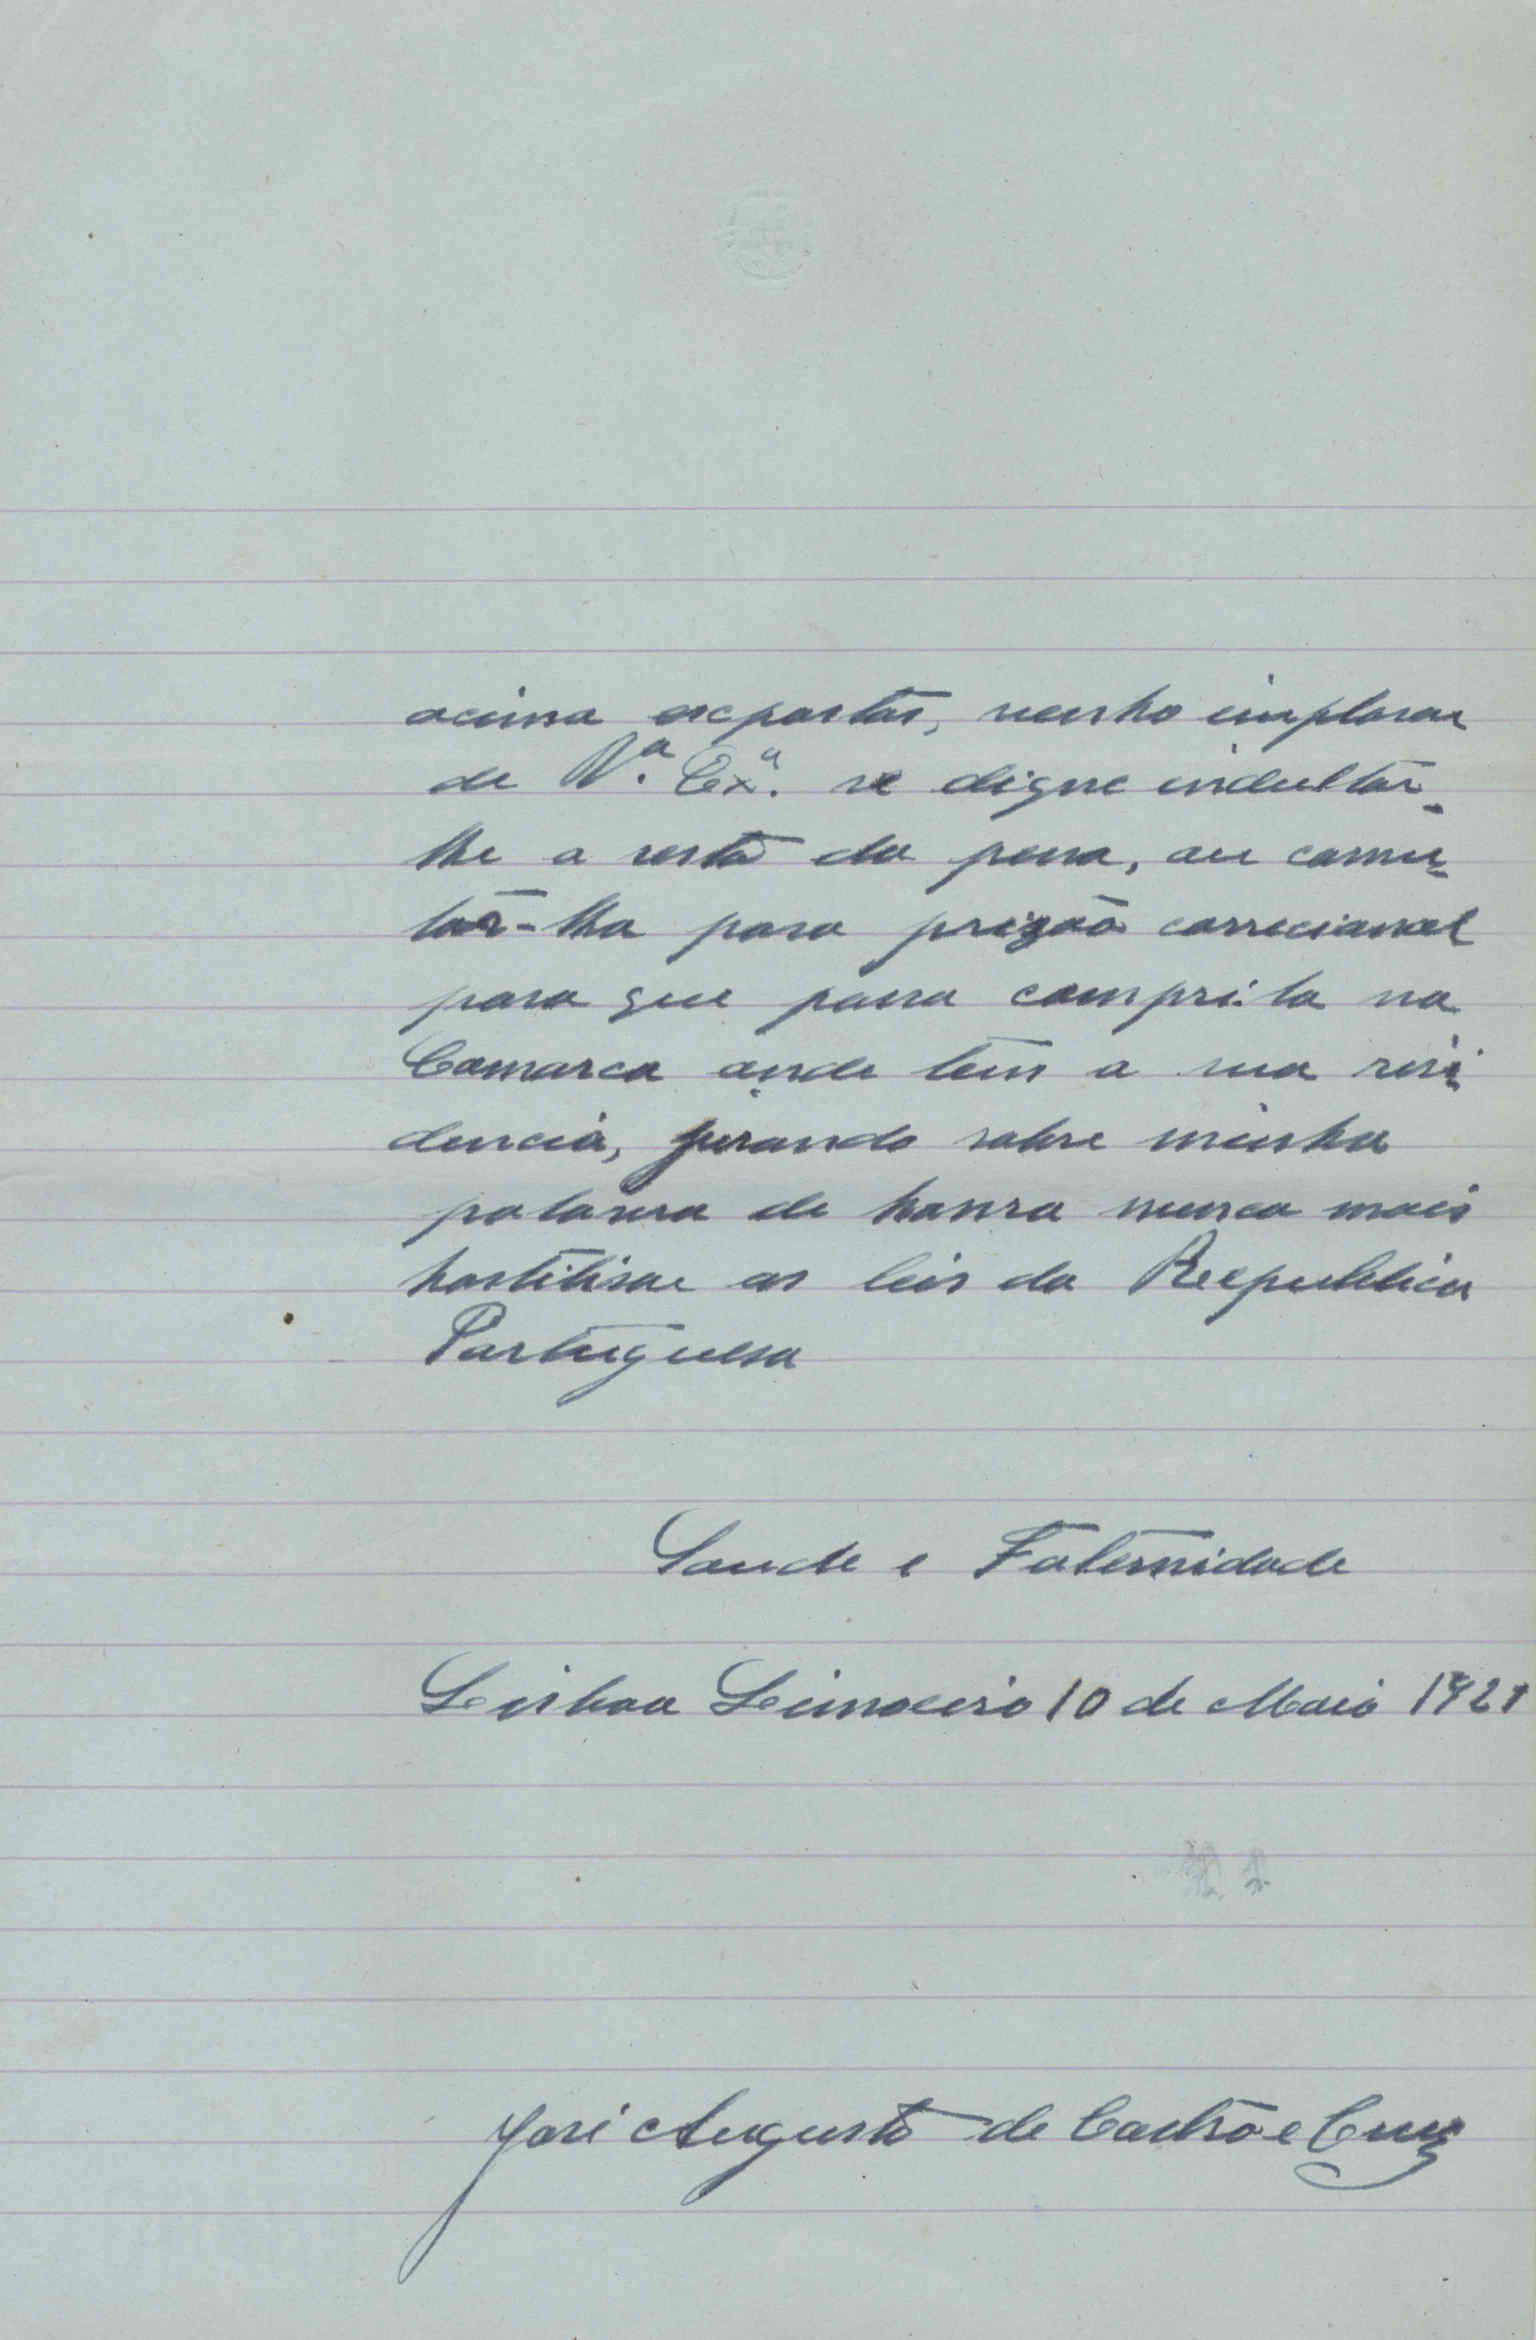 acima expostas, venho implorar
de V.ª Ex.ª se digne indultar-
lhe o resto da pena, ou comu-
tar-lha para prizão correcional
para que possa compri-la na
Comarca onde tem a sua resi-
dencia, jurando sobre minha
palavra de honra nunca mais
hostilisar as leis da Republica
Portuguesa
Saude e Faternidade
Lisboa Limoeiro 10 de Maio 1921
José Augusto de Castro e Cruz